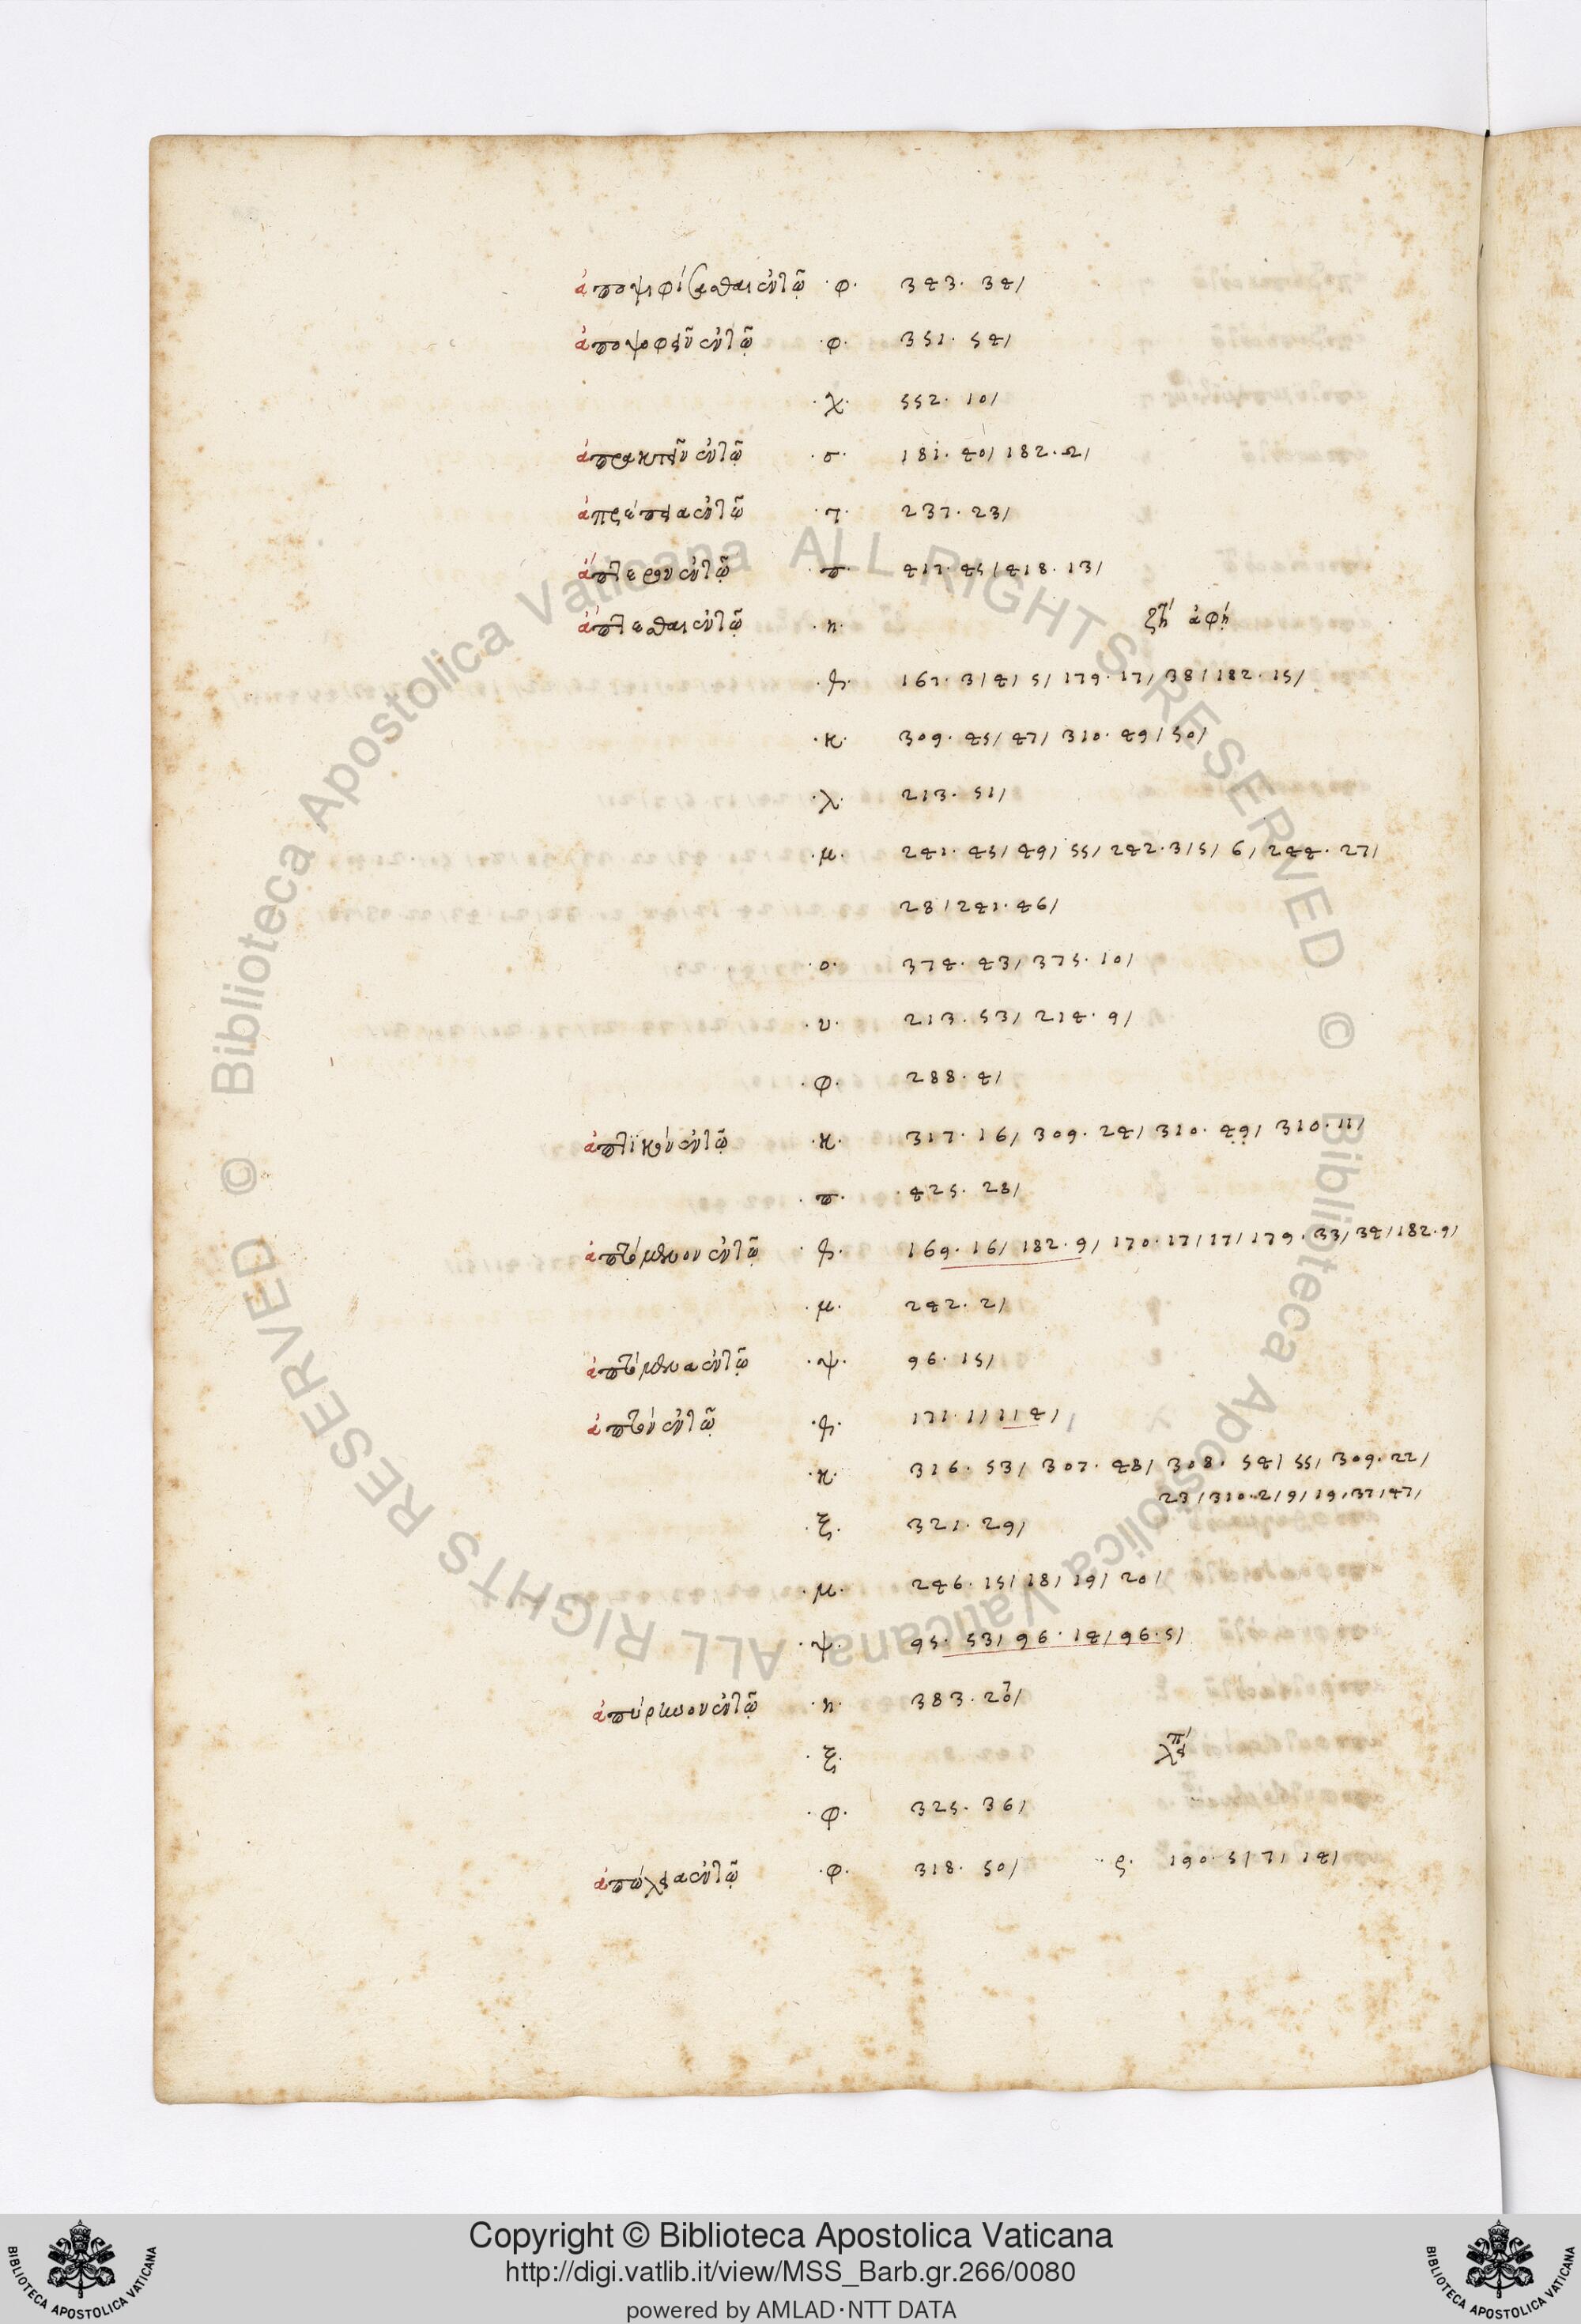 ἀποψηφίζεσθαι ἐν τῷ · φ · 343 · 34/
ἀποψοφεῖν ἐν τῷ · φ · 351 · 54/
· χ · 552 · 10/
ἀπρακτεῖν ἐν τῷ · σ · 181 · 40/ 182 · 2/
ἀπρέπεια ἐν τῷ · τ · 237 · 23/
ἄπτερον ἐν τῷ · π · 417 · 45/ 418 · 13/
ἅπτεσθαι ἐν τῷ · η · ζτ ἀφή
167 · 3/ 4/ 5/ 179 · 17/ 38/ 182 · 15/
· κ · 309 · 45/ 47/ 310 · 49/ 50/
· λ · 213 · 51/
· μ · 241 · 45/ 49/ 55/ 242 · 3/ 5/ 6/ 244 · 27/
28/ 241 · 46/
· ο · 374 · 43/ 375 · 10/
· υ · 213 · 53/ 214 · 9/
· φ · 288 · 4/
ἁπτικόν ἐν τῷ · κ · 317 · 16/ 309 · 24/ 310 · 49/ 310 · 11/
· π · 425 · 28/
ἁπτόμενον ἐν τῷ 169 · 16/ 182 · 9/ 170 · 17/ 17/ 179 · 33/ 34/ 182 · 9/
· μ · 242 · 2/
ἁπτόμενα ἐν τῷ · ψ · 96 · 15/
ἁπτόν ἐν τῷ 171 · 1/ 11 4/
· κ · 316 · 53/ 307 · 48/ 308 · 54/ 55/ 309 · 22/
23/ 310 · 2/ 9/ 19/ 37/ 47/
· ξ · 321 · 29/
· μ · 246 · 15/ 18/ 19/ 20/
· ψ · 95 · 53/ 96 · 14/ 96 · 5/
ἀπύρηνον ἐν τῷ · η · 383 · 20/
· ξ ·
· φ · 325 · 36/
ἀπώλεια ἐν τῷ · φ · 318 · 50/ · ς · 190 · 5/ 7/ 14/
© Biblioteca Apostolica Vaticana ALL RIGHTS RESERVED © Biblioteca Apostolica Vaticana ALL RIGHTS RESERVED
Copyright © Biblioteca Apostolica Vaticana
http://digi.vatlib.it/view/MSS_Barb.gr.266/0080
powered by AMLAD·NTT DATA
BIBLIOTECA APOSTOLICA VATICANA
BIBLIOTECA APOSTOLICA VATICANA